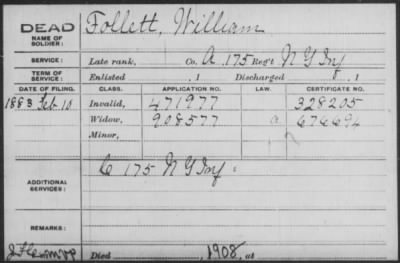 DEAD
NAME OF SOLDIER:
Follett, William
SERVICE:
Late rank, Co. A, 175 Reg't N Y Inf
TERM OF SERVICE:
Enlisted , 1 Discharged , 1
DATE OF FILING. CLASS. APPLICATION NO. LAW. CERTIFICATE NO.
1883 Feb 10 Invalid, 471977 328205
Widow, 908577 a
Minor,
ADDITIONAL SERVICES:
C 175 N Y Inf
REMARKS:
Died , 1908, at